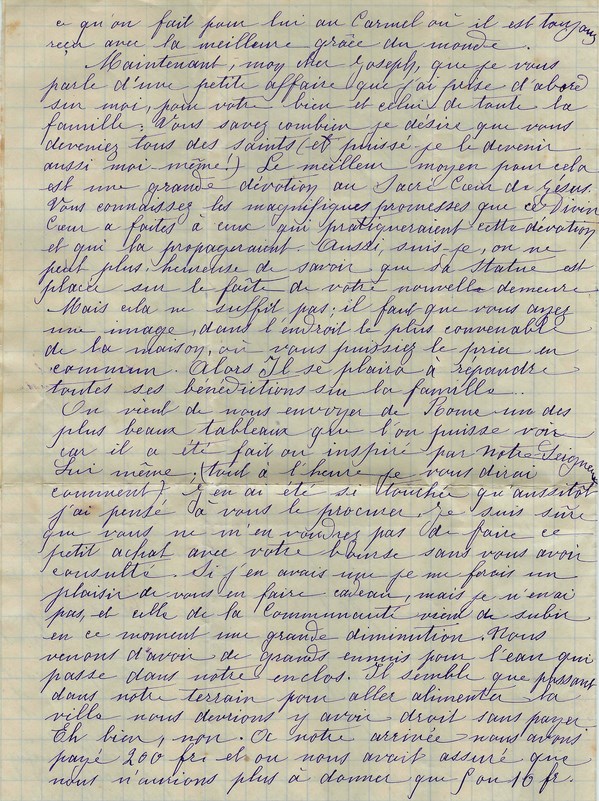 ce qu'on fait pour lui au Carmel où il est toujours
reçu avec la meilleure grâce du monde.
Maintenant, moy cher Joseph, que je vous
parle d'une petite affaire que j'ai prise d'abord
sur moi, pour votre bien et celui de toute la
famille. Vous savez combien je désire que vous
deveniez tous des saints (et puissé-je le devenir
aussi moi-même!) Le meilleur moyen pour cela
est une grande dévotion au Sacré Cœur de Jésus.
Vous connaissez les magnifiques promesses que ce Divin
Cœur a faites à ceux qui pratiqueraient cette dévotion
et qui la propageraient. Aussi, suis-je, on ne
peut plus, heureuse de savoir que sa statue est
placée sur le faîte de votre nouvelle demeure
Mais cela ne suffit pas; il faut que vous ayez
une image, dans l'endroit le plus convenable
de la maison, où vous puissiez le prier en
commun. Alors Il se plaira à répandre
toutes ses bénédictions sur la famille..
On vient de nous envoyer de Rome un des
plus beaux tableaux que l'on puisse voir
car il a été fait ou inspiré par Notre Seigneur
Lui même. (tout à l'heure je vous dirai
comment) J'en ai été si touchée qu'aussitôt
j'ai pensé à vous le procurer. Je suis sûre
que vous ne m'en voudrez pas de faire ce
petit achat avec votre bourse sans vous avoir
consulté. Si j'en avais une je me ferais un
plaisir de vous en faire cadeau, mais je n'en ai
pas, et celle de la Communauté vient de subir
en ce moment une grande diminution. Nous
venons d'avoir de grands ennuis pour l'eau qui
passe dans notre enclos. Il semble que passant
dans notre terrain pour aller alimenter la
ville nous devrions y avoir droit sans payer
Eh bien, non. A notre arrivée nous avons
payé 200 fr. et on nous avait assuré que
nous n'aurions plus à donner que ou 16 fr.